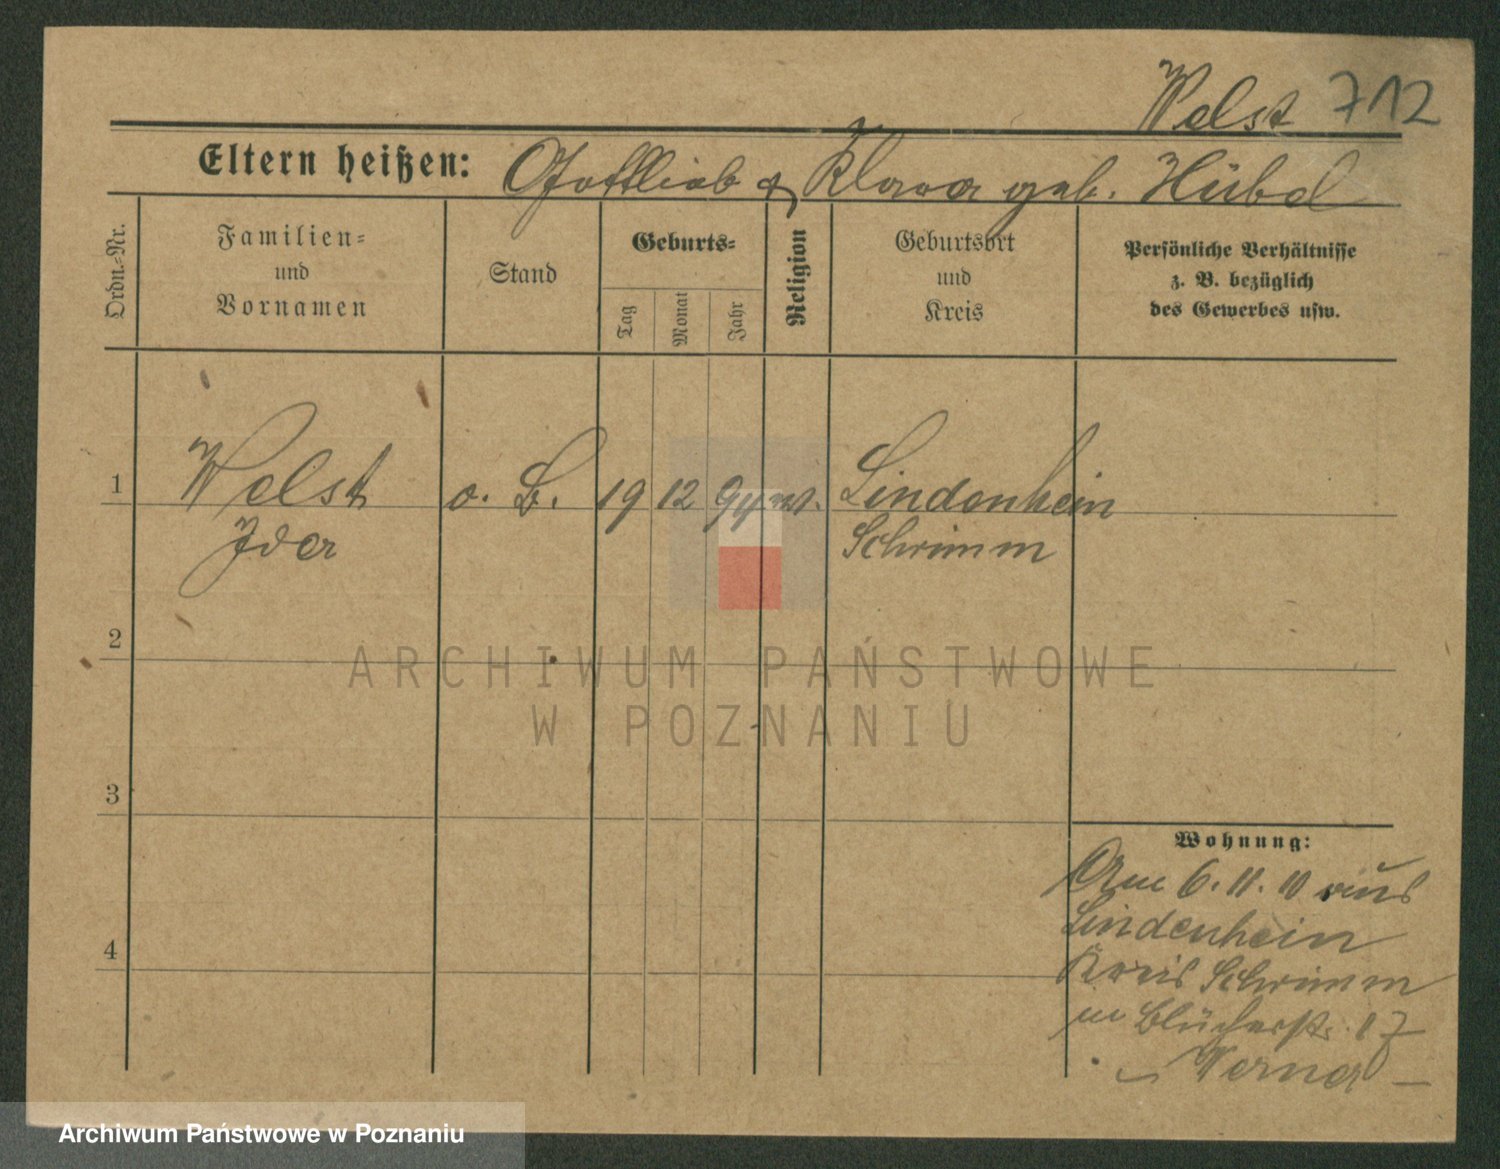 Welst 712
Eltern heißen: Gottlieb & Klara geb. Hübel
Ordn.-Nr.
Familien-
und
Vornamen
Stand
Geburts-
Tag
Monat
Jahr
Religion
Geburtsort
und
Kreis
Persönliche Verhältnisse
z. B. bezüglich
des Gewerbes usw.
1 Welst o. B. 19 12 94 Lindenhein
Ida Schrimm
2
ARCHIWUM PAŃSTWOWE
W POZNANIU
3
Wohnung:
Am 6. 11. 10 aus
Lindenhein
4
Kreis Schrimm
n Blücherstr. 17
Archiwum Państwowe w Poznaniu